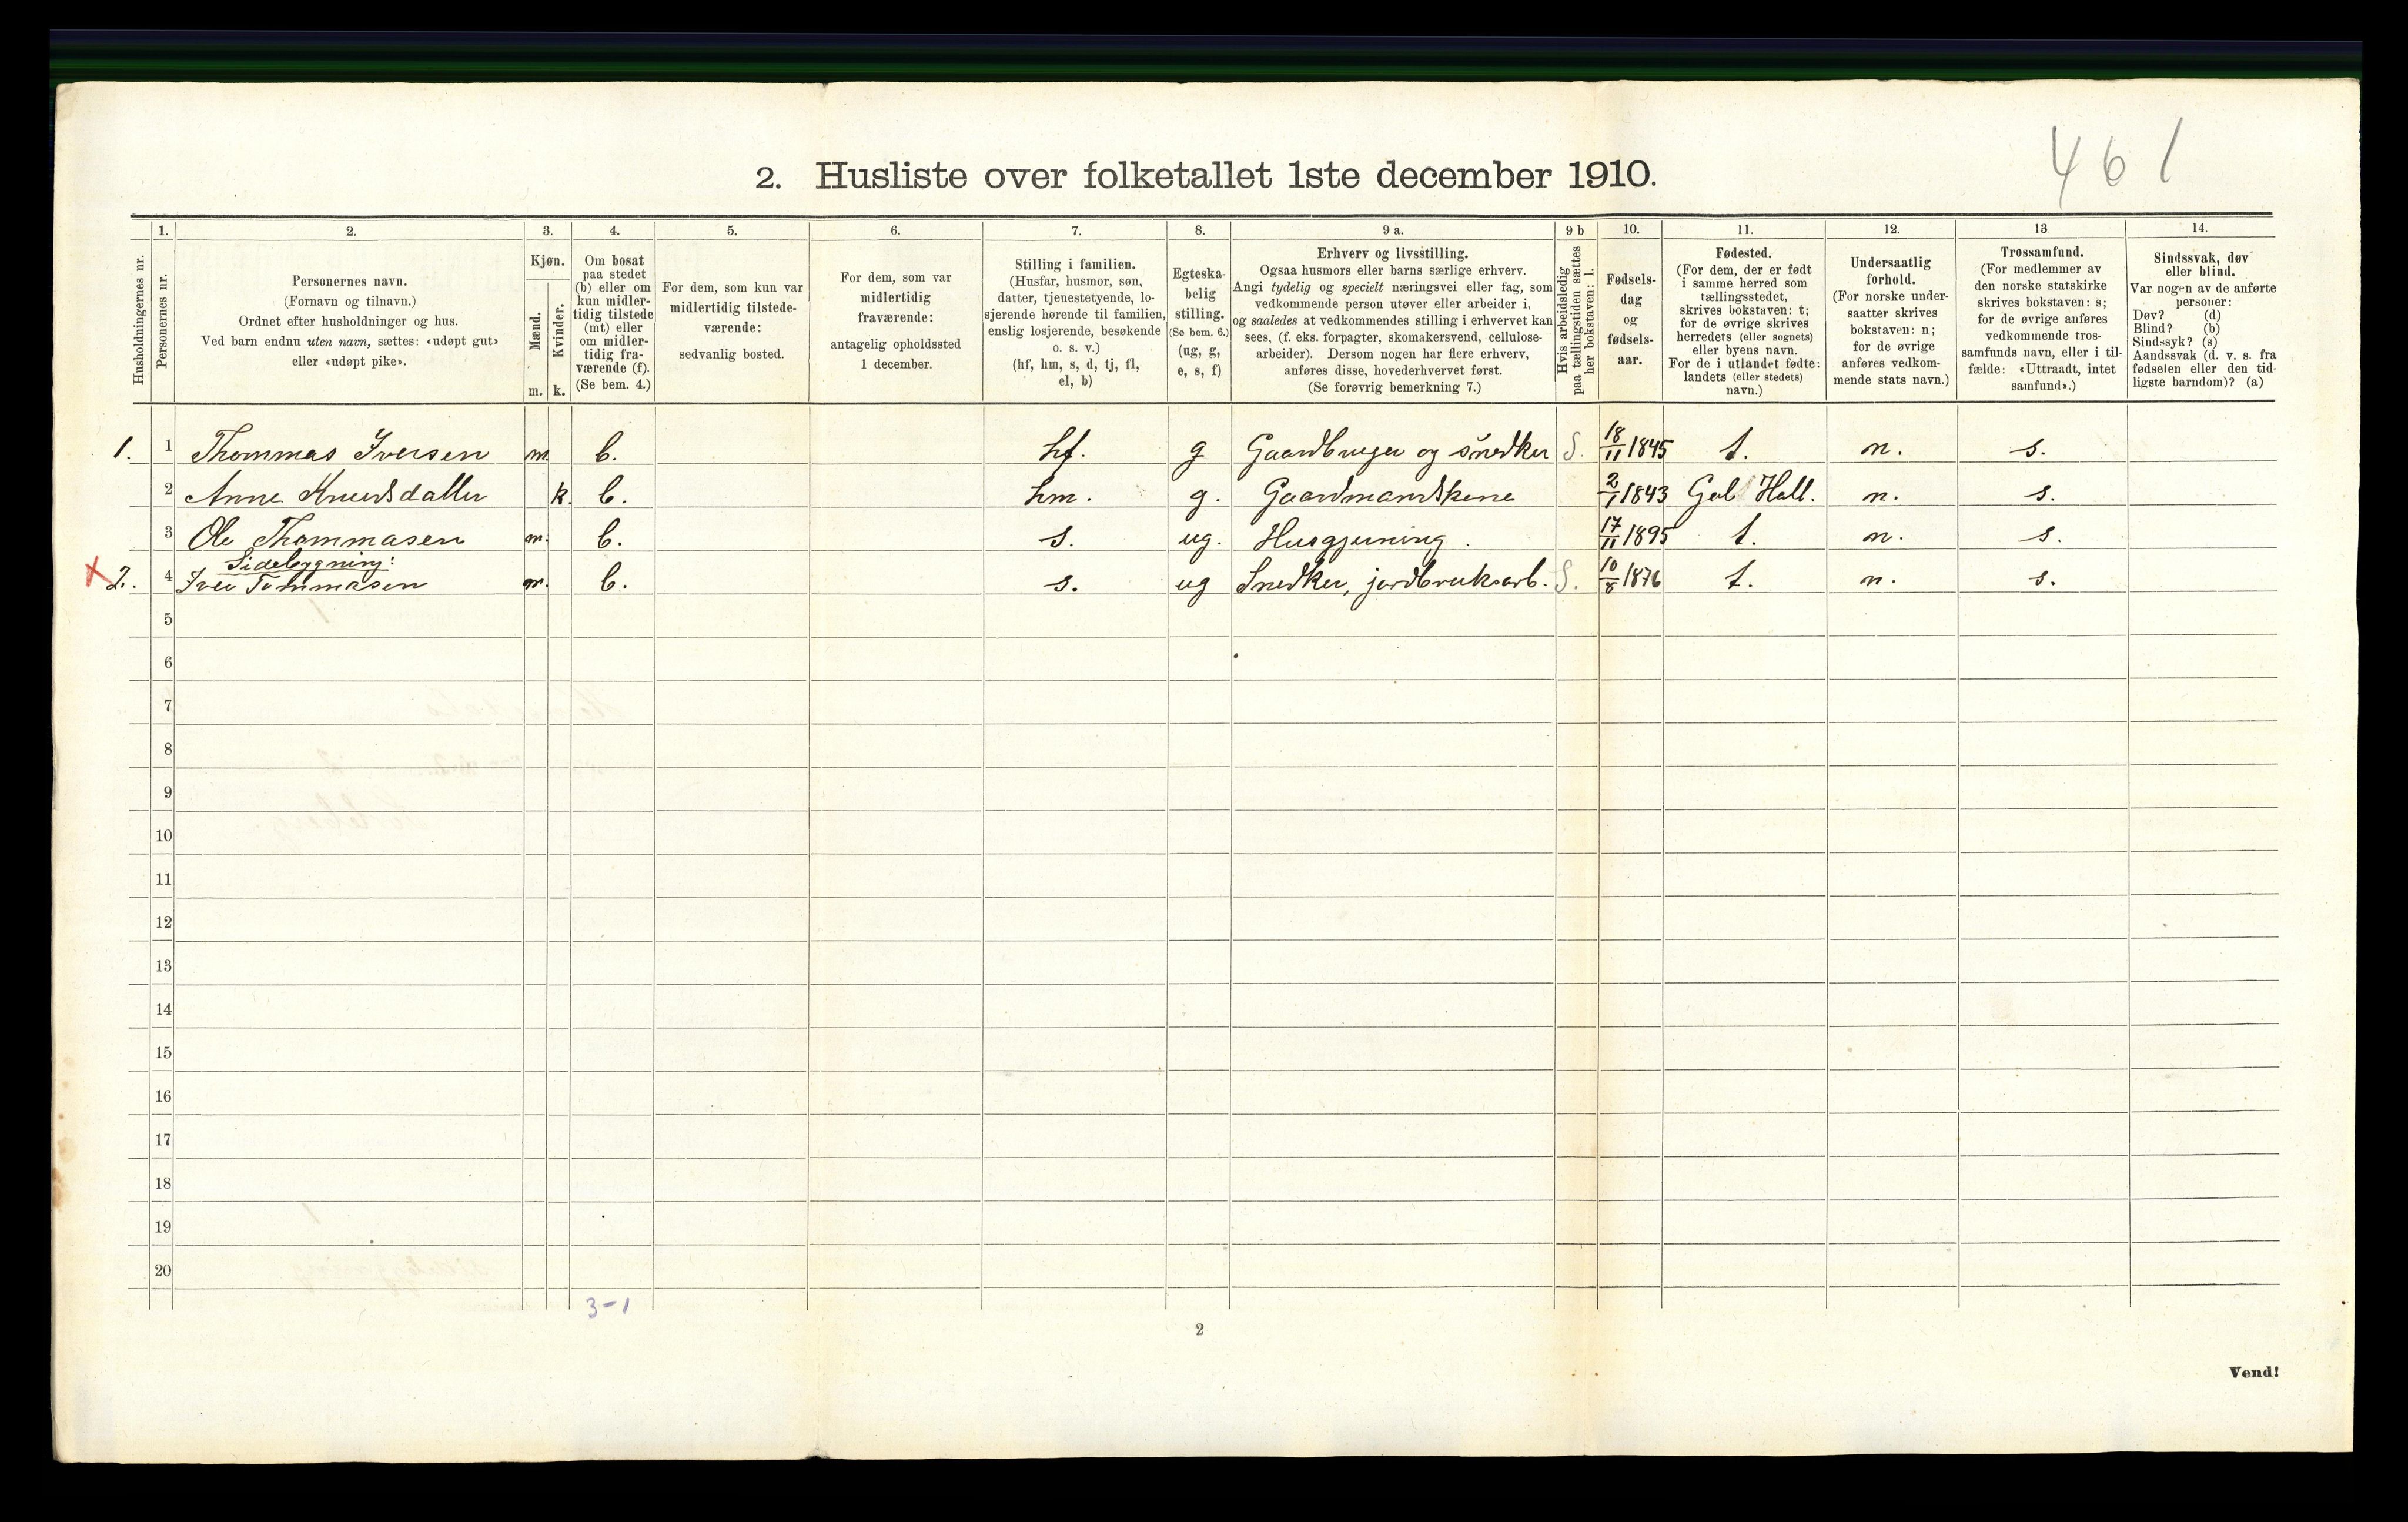 461
2. Husliste over folketallet 1ste december 1910.
Husholdningernes nr.
1.
Personernes nr.
2.
Personernes navn.
(Fornavn og tilnavn.)
Ordnet efter husholdninger og hus.
Ved barn endnu uten navn, sættes: «udøpt gut»
eller «udøpt pike».
3.
Kjøn.
Mænd.
m.
Kvinder.
k.
4.
Om bosat
paa stedet
(b) eller om
kun midler-
tidig tilstede
(mt) eller
om midler-
tidig fra-
værende (f).
(Se bem. 4.)
5.
For dem, som kun var
midlertidig tilstede-
værende:
sedvanlig bosted.
6.
For dem, som var
midlertidig
fraværende:
antagelig opholdssted
1 december.
7.
Stilling i familien.
(Husfar, husmor, søn,
datter, tjenestetyende, lo-
sjerende hørende til familien,
enslig losjerende, besøkende
o. s. v.)
(hf, hm, s, d, tj, fl,
el, b)
8.
Egteska-
belig
stilling.
(Se bem. 6.)
(ug, g,
e, s, f)
9 a.
Erhverv og livsstilling.
Ogsaa husmors eller barns særlige erhverv.
Angi tydelig og specielt næringsvei eller fag, som
vedkommende person utøver eller arbeider i,
og saaledes at vedkommendes stilling i erhvervet kan
sees, (f. eks. forpagter, skomakersvend, cellulose-
arbeider). Dersom nogen har flere erhverv,
anføres disse, hovederhvervet først.
(Se forøvrig bemerkning 7.)
9 b
Hvis arbeidsledig
paa tællingstiden sættes
her bokstaven: l.
10.
Fødsels-
dag
og
fødsels-
aar.
11.
Fødested.
(For dem, der er født
i samme herred som
tællingsstedet,
skrives bokstaven: t;
for de øvrige skrives
herredets (eller sognets)
eller byens navn.
For de i utlandet fødte:
landets (eller stedets)
navn.)
12.
Undersaatlig
forhold.
(For norske under-
saatter skrives
bokstaven: n;
for de øvrige
anføres vedkom-
mende stats navn.)
13
Trossamfund.
(For medlemmer av
den norske statskirke
skrives bokstaven: s;
for de øvrige anføres
vedkommende tros-
samfunds navn, eller i til-
fælde: «Uttraadt, intet
samfund».)
14.
Sindssvak, døv
eller blind.
Var nogen av de anførte
personer:
Døv? (d)
Blind? (b)
Sindssyk? (s)
Aandssvak (d. v. s. fra
fødselen eller den tid-
ligste barndom)? (a)
1. 1 Thommas Iversen m b. hf. g Gaardbruger og snedker S. 18/11 1845 t. n. s.
2 Anne Knudsdatter k. b. hm. g. Gaardmandskone 2/1 1843 Gol Hall. n. s.
3 Ole Thommasen m. b. s. ug. Husgjerning. 17/11 1895 t. n. s.
Sidebygning:
x 2. 4 Iver Tommasen m. b. s. ug Snedker, jordbruksarb. S. 10/8 1876 t. n. s.
5
6
7
8
9
10
11
12
13
14
15
16
17
18
19
20
3-1
2
Vend!